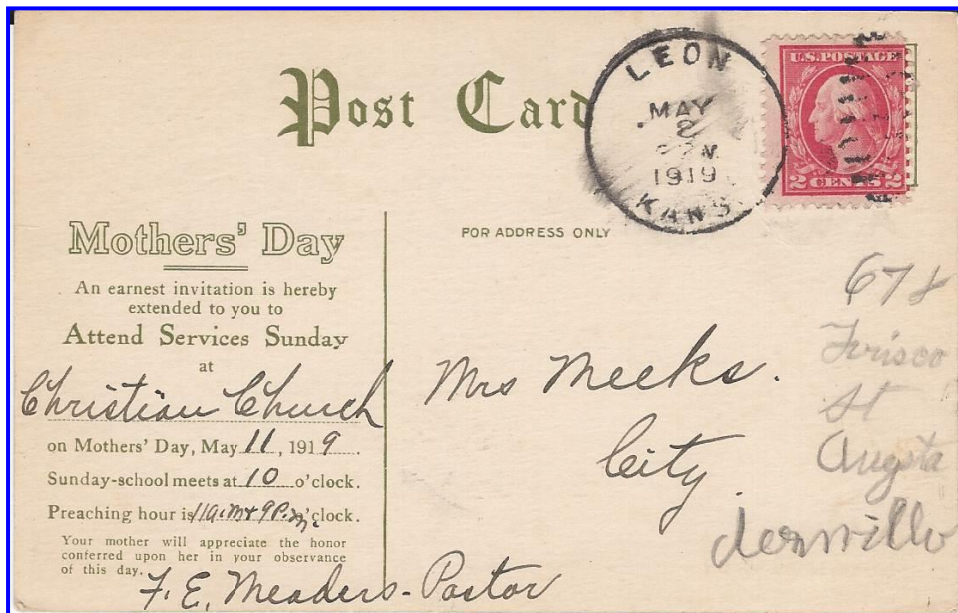 Post Card
LEON
MAY
2
M
1919
KANS
U.S. POSTAGE
2 CENTS 2
Mothers' Day
An earnest invitation is hereby
extended to you to
Attend Services Sunday
at
Christian Church
on Mothers' Day, May 11, 1919.
Sunday-school meets at 10 o'clock.
Preaching hour is 11 a.m & 9 P.m. o'clock.
Your mother will appreciate the honor
conferred upon her in your observance
of this day.
F. E. Meaders - Pastor
FOR ADDRESS ONLY
Mrs Meeks.
City.
678
Frisco
St
Augsta